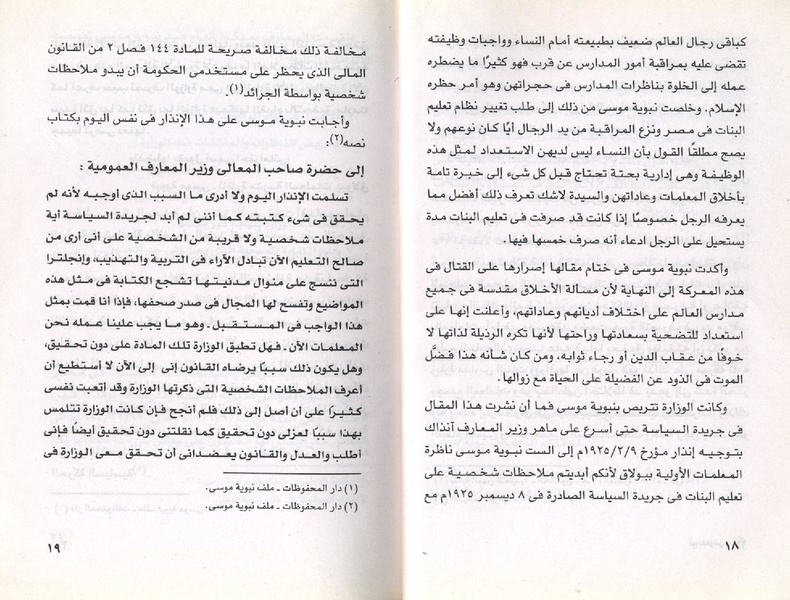 كباقى رجال العالم ضعيف بطبيعته أمام النساء وواجبات وظيفته
تقضى عليه بمراقبة أمور المدارس عن قرب فهو كثيرًا ما يضطره
عمله إلى الخلوة بناظرات المدارس فى حجراتهن وهو أمر حظره
الإسلام. وخلصت نبوية موسى من ذلك إلى طلب تغيير نظام تعليم
البنات فى مصر ونزع المراقبة من يد الرجال أيًا كان نوعهم ولا
يصح مطلقًا القول بأن النساء ليس لديهن الاستعداد لمثل هذه
الوظيفة وهى إدارية بحتة تحتاج قبل كل شىء إلى خبرة تامة
بأخلاق المعلمات وعاداتهن والسيدة لاشك تعرف ذلك أفضل مما
يعرفه الرجل خصوصًا إذا كانت قد صرفت فى تعليم البنات مدة
يستحيل على الرجل ادعاء أنه صرف خمسها فيها.
وأكدت نبوية موسى فى ختام مقالها إصرارها على القتال فى
هذه المعركة إلى النهاية لأن مسألة الأخلاق مقدسة فى جميع
مدارس العالم على اختلاف أديانهم وعاداتهم، وأعلنت إنها على
استعداد للتضحية بسعادتها وراحتها لأنها تكره الرذيلة لذاتها لا
خوفًا من عقاب الدين أو رجاء ثوابه، ومن كان شأنه هذا فضلَّ
الموت فى الذود عن الفضيلة على الحياة مع زوالها.
وكانت الوزارة تتربص بنبوية موسى فما أن نشرت هذا المقال
فى جريدة السياسة حتى أسرع على ماهر وزير المعارف آنذاك
بتوجيه إنذار مؤرخ ١٩٢٥/٢/٩م إلى الست نبوية موسى ناظرة
المعلمات الأولية ببولاق لأنكم أبديتم ملاحظات شخصية على
تعليم البنات فى جريدة السياسة الصادرة فى ٨ ديسمبر ١٩٢٥م مع
١٨
مخالفة ذلك مخالفة صريحة للمادة ١٤٤ فصل ٢ من القانون
المالى الذى يحظر على مستخدمى الحكومة أن يبدو ملاحظات
شخصية بواسطة الجرائد(١).
وأجابت نبوية موسى على هذا الإنذار فى نفس اليوم بكتاب
نصه(٢):
إلى حضرة صاحب المعالى وزير المعارف العمومية :
تسلمت الإنذار اليوم ولا أدرى ما السبب الذى أوجبه لأنه لم
يحقق فى شىء كتبته كما أننى لم أبد لجريدة السياسة أية
ملاحظات شخصية ولا قريبة من الشخصية على أنى أرى من
صالح التعليم الآن تبادل الآراء فى التربية والتهذيب، وإنجلترا
التى ننسج على منوال مدنيتها تشجع الكتابة فى مثل هذه
المواضيع وتفسح لها المجال فى صدر صحفها، فإذا أنا قمت بمثل
هذا الواجب فى المستقبل ـ وهو ما يجب علينا عمله نحن
المعلمات الآن ـ فهل تطبق الوزارة تلك المادة على دون تحقيق،
وهل يكون ذلك سببًا يرضاه القانون إنى إلى الآن لا أستطيع أن
أعرف الملاحظات الشخصية التى ذكرتها الوزارة وقد أتعبت نفسى
كثيرًا على أن أصل إلى ذلك فلم أنجح فإن كانت الوزارة تتلمس
بهذا سببًا لعزلى دون تحقيق كما نقلتنى دون تحقيق أيضًا فإنى
أطلب والعدل والقانون يعضدانى أن تحقق معى الوزارة فى
(١) دار المحفوظات ـ ملف نبوية موسى.
(٢) دار المحفوظات ـ ملف نبوية موسى.
١٩